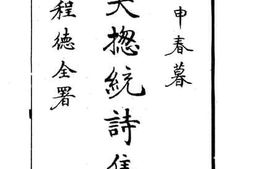 申春暮
大揔統詩集
程德全署